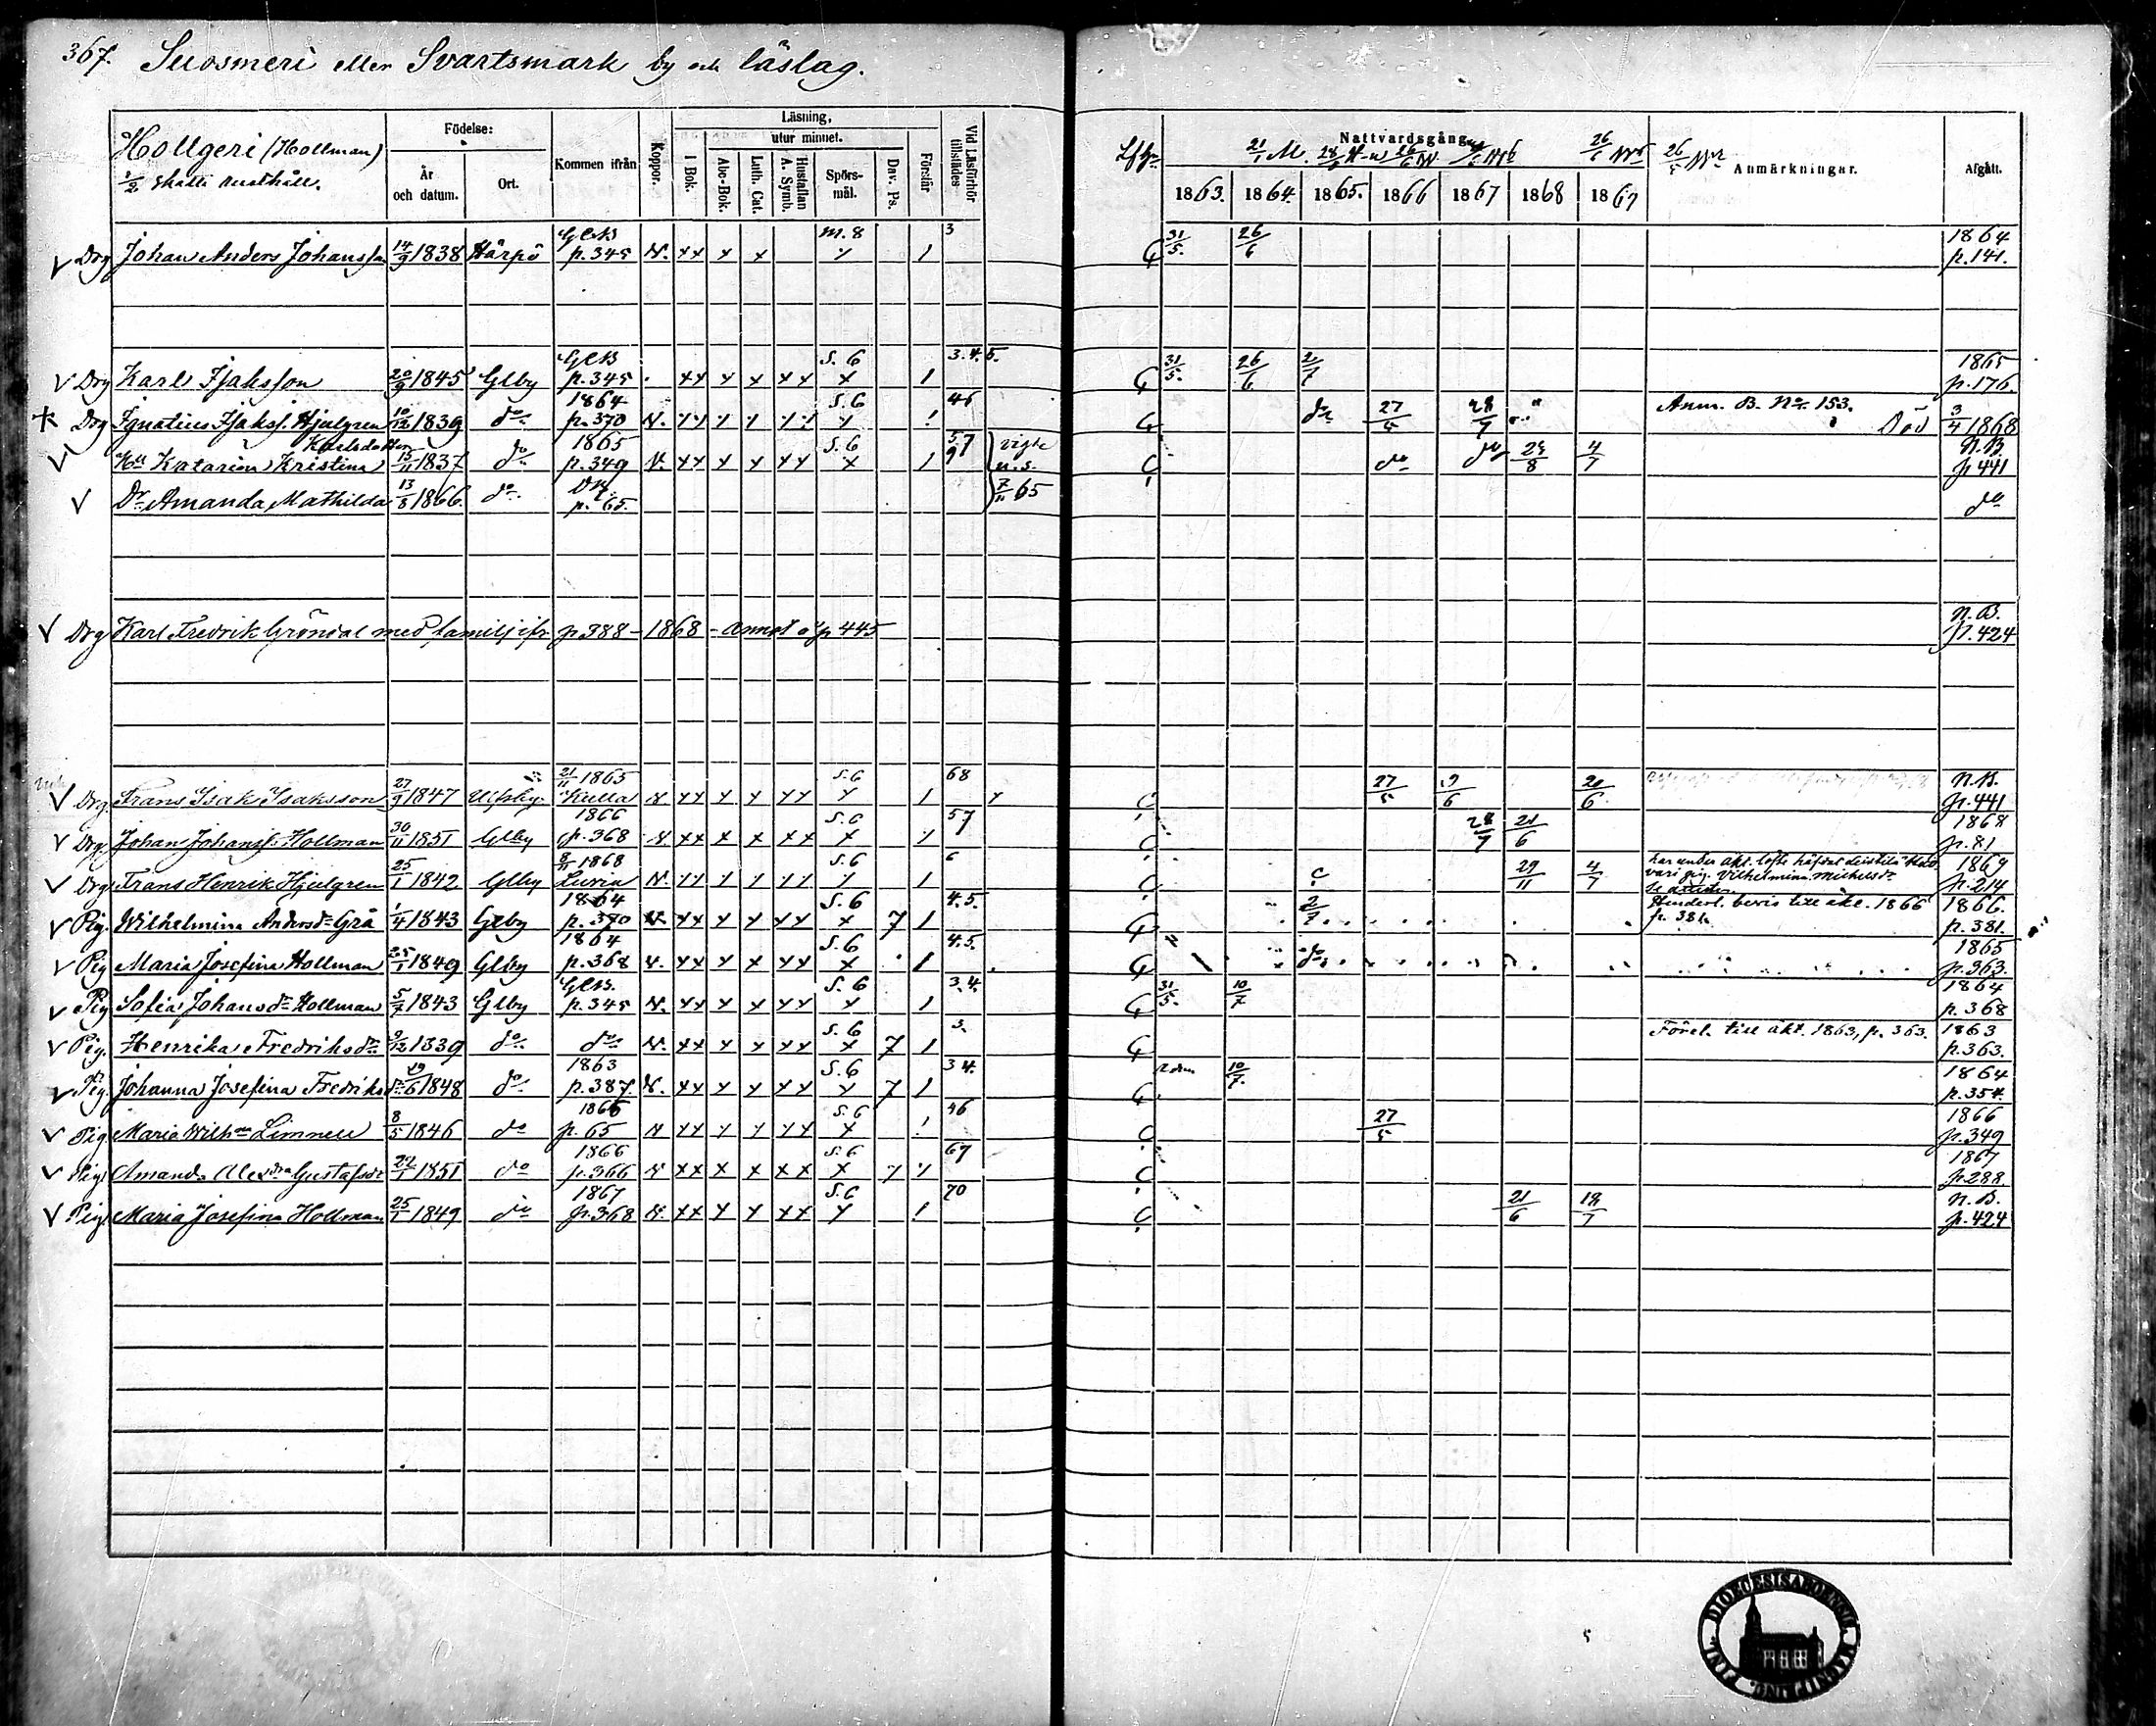 367. Suosmeri eller Svartsmark by och läslag.
Hollgeri (Hollman)
1/2 skatts rusthåll.
Födelse:
År och datum.
Ort.
Kommen ifrån
Koppor.
Läsning,
utur minnet.
I Bok.
Abc-Bok.
Luth. Cat.
Hustaflan A. Symb.
Spörs-mål.
Dav. Ps.
Förstår
Vid Läsförhör tillstädes
Nattvardsgång
1863. 1864. 1865. 1866 1867 1868 1869
Anmärkningar.
Afgått.
Drg Johan Anders Johansson 14/9 1838 Härpö GCB p. 345 N. xx x x m. 8 x / 3 31/5. 26/6 1864 p. 141.
Drg Karl Isaksson 20/9 1845 Glby GCB p. 345 xx x x xx S. 6 x / 3.4.5. 31/5. 26/6 2/7 1865 p. 176.
Drg Ignatius Isakss. Hjulgren 10/12 1839 do 1864 p. 370 N. xx x x xx S. 6 x / 46 do 27/5 28/7 Anm. B. No 153. Död 3/4 1868
Hu Katarina Kristina Karlsdotter 15/11 1837 do 1865 p. 349 N. xx x x xx S. 6 x / 57 9 vigde n.s. 7/11 65 do do 29/8 4/7 N.B. p 441
Dr Amanda Mathilda 13/8 1866. do DB p. 65. do
Drg Karl Fredrik Gröndal med familj ifr. p 388 - 1868 - annot. å p 445 N.B. p. 424
Drg. Frans Isak Isaksson 27/9 1847 Ulfsby 21/11 1865 Kulla N xx x x xx S. 6 x / 68 27/5 9/6 20/6 N.B. p. 441
Drg. Johan Johanss. Hollman 30/11 1851 Glby 1866 p. 368 N xx x x xx S. 6 x / 57 28/7 21/6 1868 p. 81
Drg. Frans Henrik Hjulgren 25/1 1842 Glby 8/11 1868 Luvia N. xx x x xx S. 6 x / 6 29/11 4/7 Vilhelmina Michelsdr 1869 p. 214
Pig. Wilhelmina Andersdr Grå 1/4 1843 Glby 1864 p. 370 N. xx x x xx S. 6 x 7 / 4.5. 2/7 Hinderl. bevis till äkt. 1866 p. 381. 1866. p. 381.
Pig Maria Josefina Hollman 25/1 1849 Glby 1864 p. 368 N. xx x x xx S. 6 x / 4.5. do 1865 p. 363.
Pig Sofia Johansdr Hollman 5/7 1843 Glby GCB. p. 345 N. xx x x xx S. 6 x / 3.4. 31/5. 10/7 1864 p. 368
Pig. Henrika Fredriksdr 9/12 1839 do do N. xx x x xx S. 6 x 7 / 3. Förel. till äkt. 1863, p. 363. 1863 p. 363.
Pig. Johanna Josefina Fredriksdr 19/6 1848 do 1863 p. 387. N. xx x x xx S. 6 x 7 / 34. 10/7. 1864 p. 354.
Pig Maria Wilhna Limnell 8/5 1846 do 1865 p. 65 N xx x x xx S. 6 x / 46 27/5 1866 p. 349
Pig Amanda Alexdra Gustafsdr 22/1 1851 do 1866 p. 366 N xx x x xx S. 6 x 7 / 67 1867 p. 288.
Pig Maria Josefina Hollman 25/1 1849 do 1867 p. 368 N. xx x x xx S. 6 x / 70 21/6 18/7 N.B. p. 424